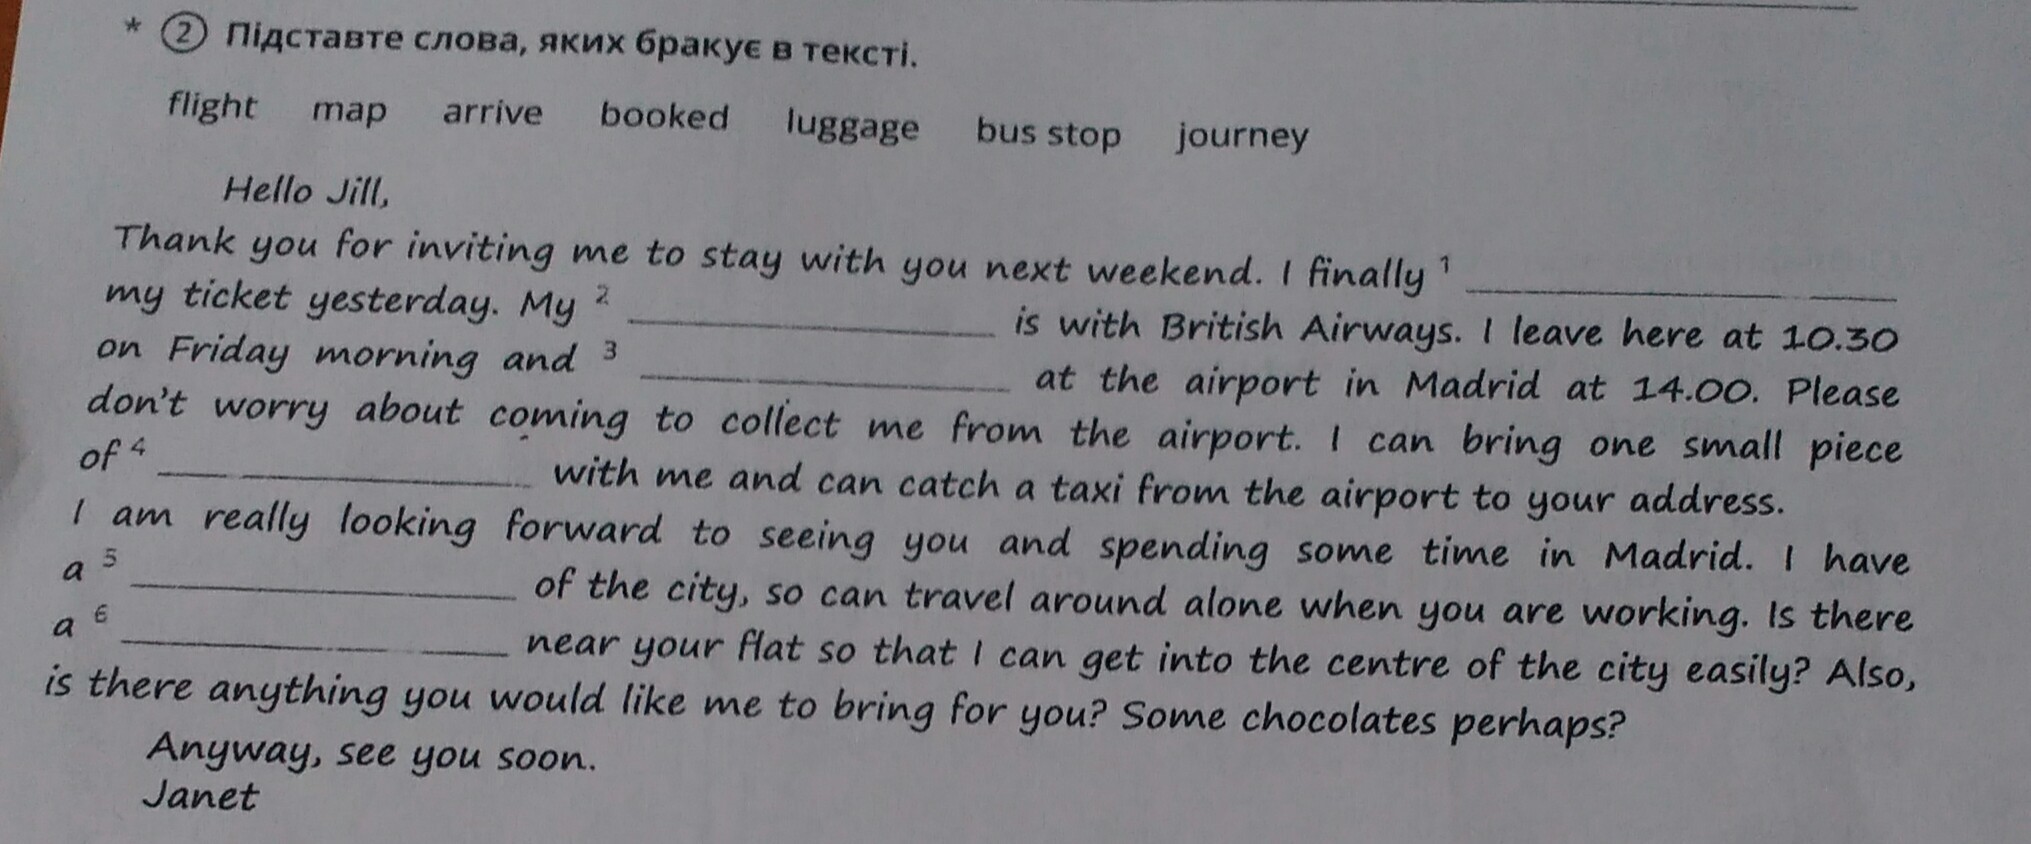 * ② Підставте слова, яких бракує в тексті.
flight map arrive booked luggage bus stop journey
Hello Jill,
Thank you for inviting me to stay with you next weekend. I finally ¹ ____________
my ticket yesterday. My ² ____________ is with British Airways. I leave here at 10.30
on Friday morning and ³ ____________ at the airport in Madrid at 14.00. Please
don't worry about coming to collect me from the airport. I can bring one small piece
of ⁴ ____________ with me and can catch a taxi from the airport to your address.
I am really looking forward to seeing you and spending some time in Madrid. I have
a ⁵ ____________ of the city, so can travel around alone when you are working. Is there
a ⁶ ____________ near your flat so that I can get into the centre of the city easily? Also,
is there anything you would like me to bring for you? Some chocolates perhaps?
Anyway, see you soon.
Janet